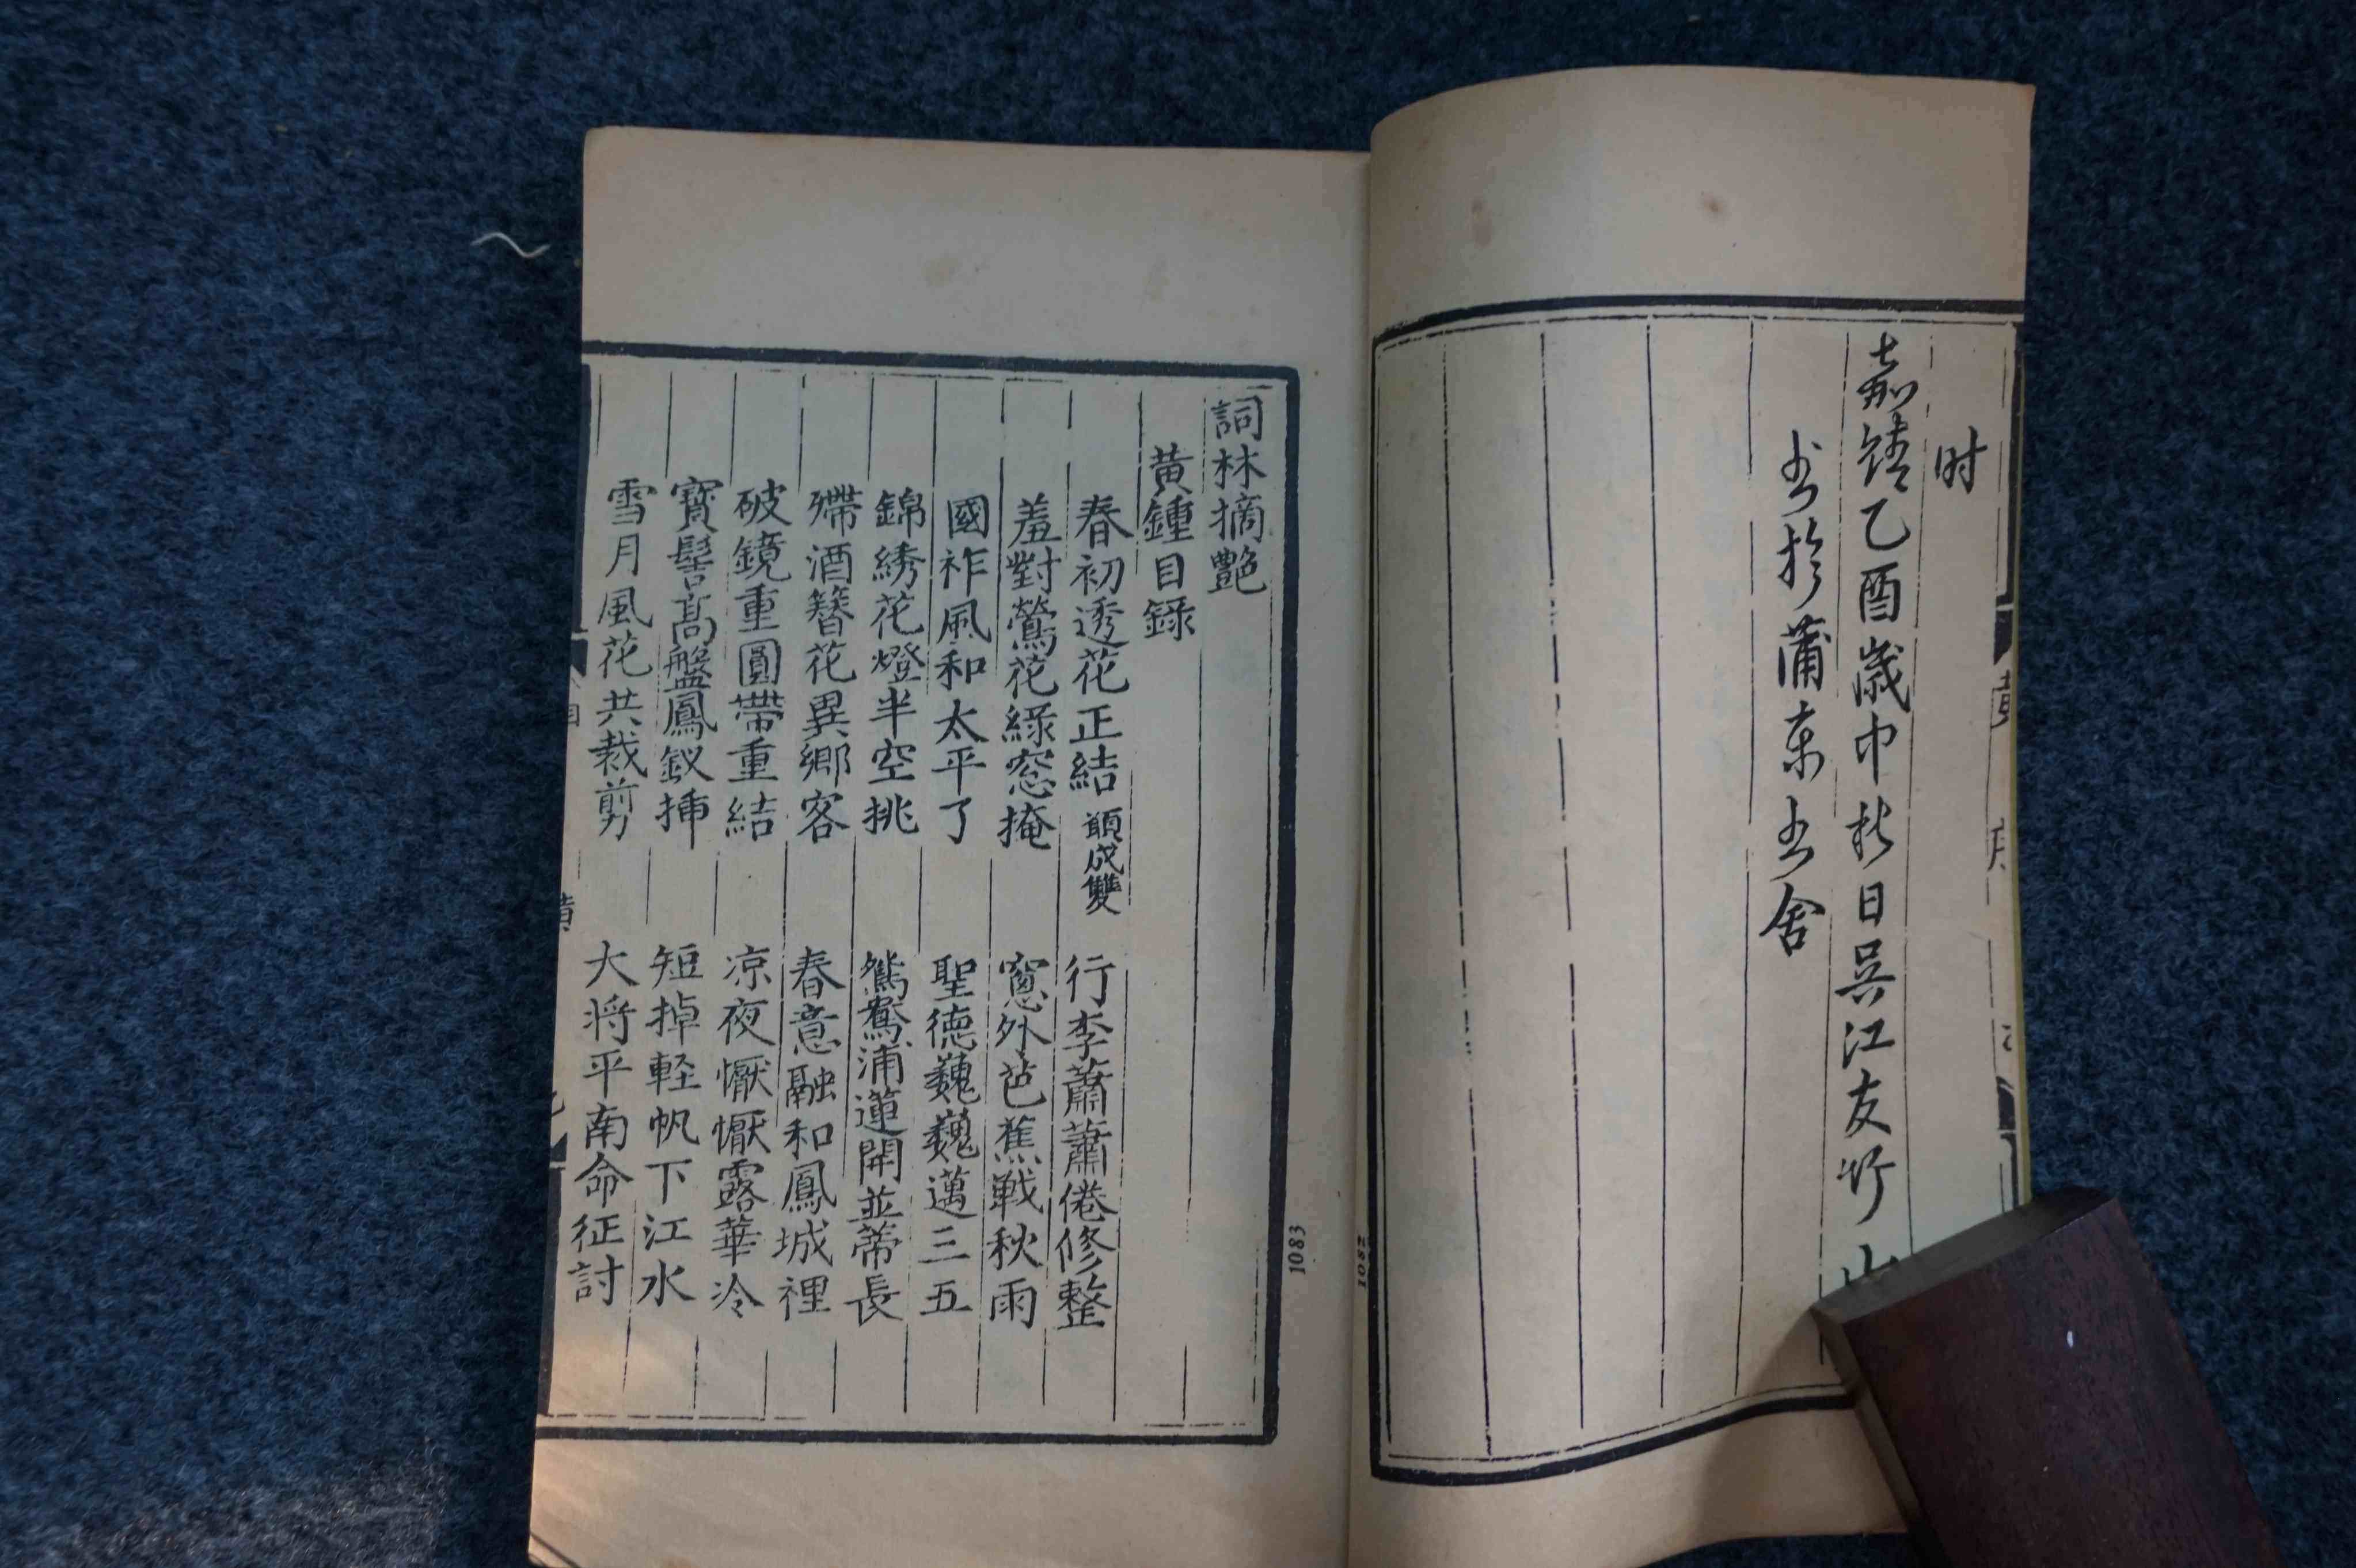 时
嘉靖乙酉歲中秋日吳江友竹山
书於蒲东书舍
1082
詞林摘艷
黄鍾目錄
春初透花正結 願成雙 行李蕭蕭倦修整
羞對鶯花綠窓掩 窻外芭蕉戰秋雨
國祚風和太平了 聖德巍巍邁三五
錦綉花燈半空挑 鴛鴦浦蓮開並蒂長
殢酒簪花異鄉客 春意融和鳳城裡
破鏡重圓帶重結 凉夜懨懨露華冷
寳髻髙盤鳳釵揷 短掉軽帆下江水
雪月風花共裁剪 大将平南命征討
1083